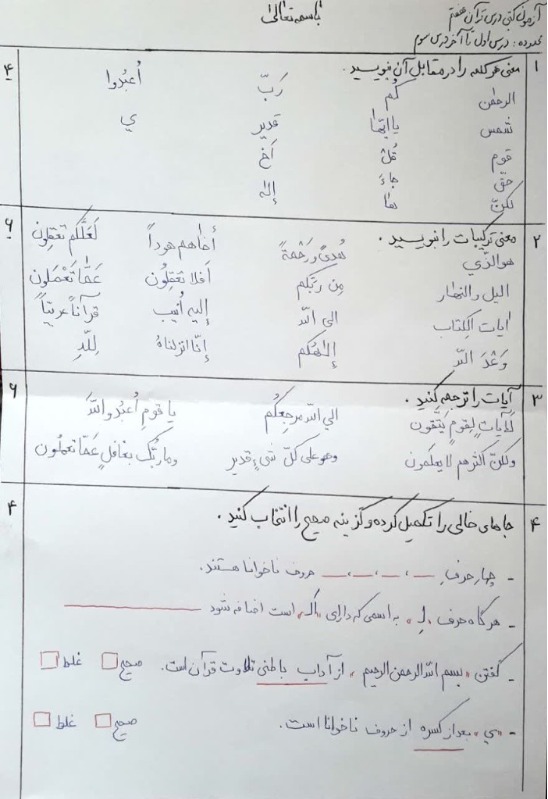 باسمه تعالی
آزمون کتبی درس قرآن هفتم
محدوده : درس اول تا آخر درس سوم
۱ معنی هر کلمه را در مقابل آن بنویسید . ۴
الرحمٰن کُم رَبّ اُعبُدوا
شمس یا ایّها قدیر ي
قوم قُلْ أخ
حقّ جاءَ إلٰه
لکنّ ها
۲ معنی ترکیبات را بنویسید . ۶
هوالّذي هُدیً وَ رَحْمَةً أخاهم هوداً لَعَلَّکُم تَعقِلون
الیل والنهار مِن رَبّکم اَفلا تعقِلُون عَمّا تَعْمَلون
ءایات الکِتاب الی اللّه إلیه اُنیب قرآناً عربیّاً
وَعْدَ اللّه إلٰهُکُم إنّا انزلناهُ لِلّهِ
۳ آیات را ترجمه کنید . ۶
لَآیاتٍ لِقومٍ یَتّقون الی اللّه مرجِعُکُم یا قومِ اُعبُدُوا اللّهَ
ولکنّ اکثرهم لا یعلمون وهو علی کلّ شیءٍ قدیر وما ربُّک بِغافلٍ عَمّا تعملُون
۴ جاهای خالی را تکمیل کرده و گزینه صحیح را انتخاب کنید . ۴
- چهار حرفِ ــ ، ــ ، ــ ، ــ حروف ناخوانا هستند.
- هرگاه حرف «لِـ» به اسمی که دارای «الـ» است اضافه شود ــــــــ
- گفتن «بسم اللّه الرحمن الرحیم» از آداب باطنی تلاوت قرآن است. صحیح □ غلط □
- «ي» بعد از کسره از حروف ناخوانا است. صحیح □ غلط □